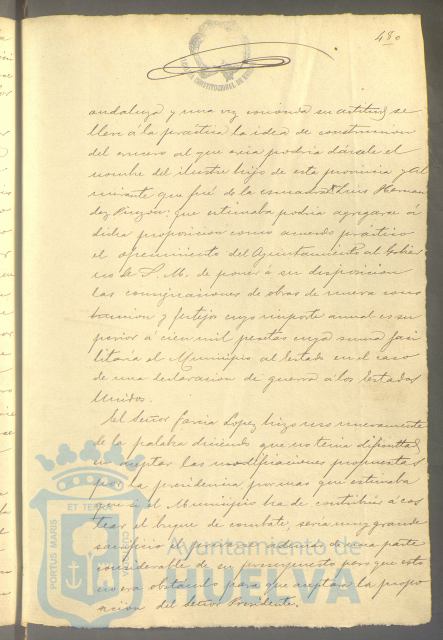 480
andaluza y una vez conocida su actitud se
lleve á la practica la idea de construccion
del crucero al que seria podria dársele el
nombre del ilustre hijo de esta provincia y Al
mirante que fué de la escuadra Luis Hernan
dez Pinzon: que estimaba podria agregarse á
dicha proposicion como acuerdo práctico
el ofrecimiento del Ayuntamiento al Gobier
no de S. M. de poner á su disposicion
las consignaciones de obras de nueva cons
truccion y festejos cuyo importe anual es su
perior á cien mil pesetas cuya suma faci
litaria el Municipio al Estado en el caso
de una declaracion de guerra á los Estados
Unidos.
El Señor Garcia Lopez hizo uso nuevamente
de la palabra diciendo que no tenia dificultad
en aceptar las modificaciones propuestas
por la presidencia por mas que estimaba
que si el Municipio ha de contribuir á cos
tear el buque de combate, seria muy grande
sacrificio el de una parte
considerable de su presupuesto pero que esto
no era obstáculo para que aceptara la propo
sicion del Señor Presidente.
PORTUS MARIS ET TERRAE CUSTODIA
Ayuntamiento de
HUELVA